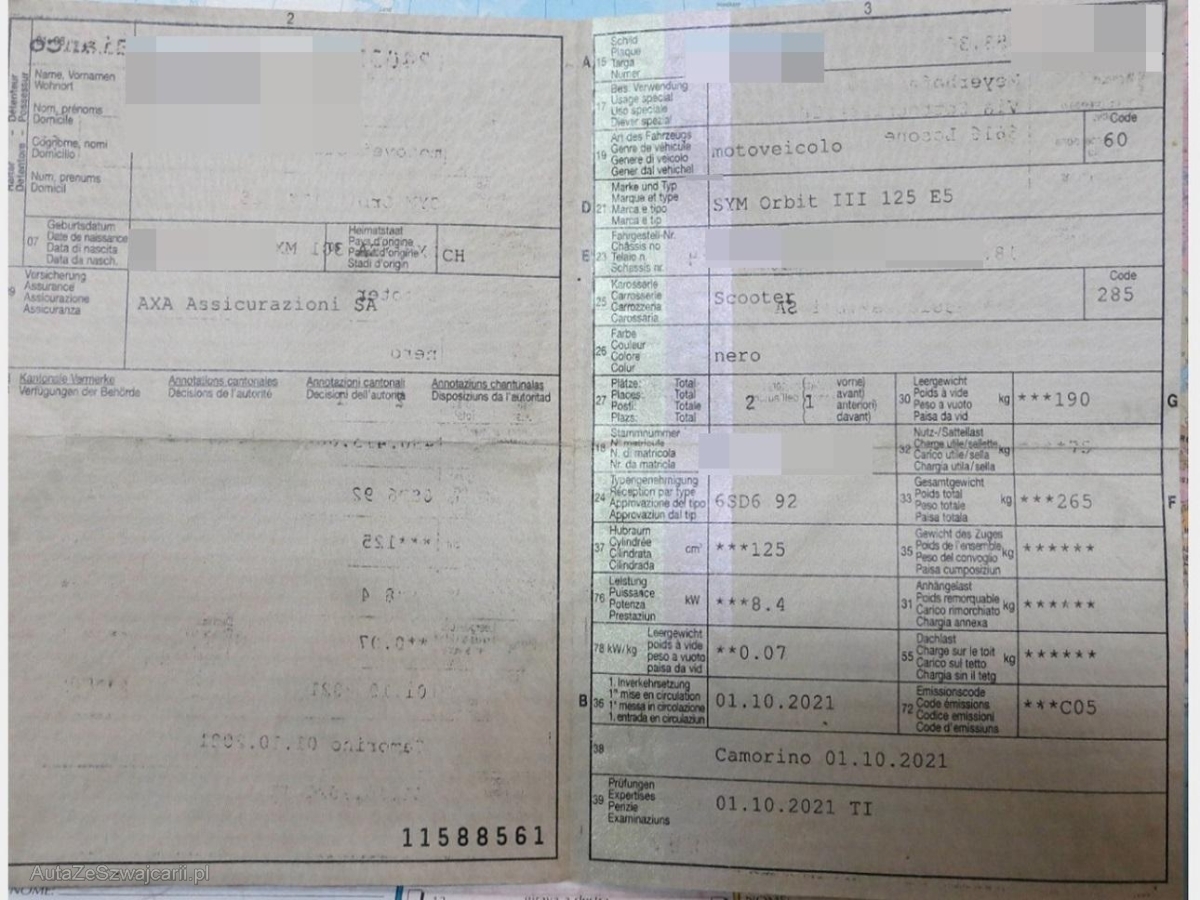 2
Name, Vornamen
Wohnort
Nom, prénoms
Domicile
Cognome, nomi
Domicilio
Num, prenums
Domicil
07
Geburtsdatum
Date de naissance
Data di nascita
Data da nasch.
Heimatstaat
Pays d'origine
Paese d'origine
Stadi d'origin
CH
Versicherung
Assurance
Assicurazione
Assicuranza
AXA Assicurazioni SA
Kantonale Vermerke
Verfügungen der Behörde
Annotations cantonales
Décisions de l'autorité
Annotazioni cantonali
Decisioni dell'autorità
Annotaziuns chantunalas
Disposiziuns da l'autoritad
11588561
3
A 15
Schild
Plaque
Targa
Numer
17
Bes. Verwendung
Usage spécial
Uso speciale
Diever spezial
19
Art des Fahrzeugs
Genre de véhicule
Genere di veicolo
Gener dal vehichel
motoveicolo
Code
60
D 21
Marke und Typ
Marque et type
Marca e tipo
Marca e tip
SYM Orbit III 125 E5
E 23
Fahrgestell-Nr.
Châssis no
Telaio n.
Schassis nr.
25
Karosserie
Carrosserie
Carrozzeria
Carossaria
Scooter
Code
285
26
Farbe
Couleur
Colore
Colur
nero
27
Plätze: Total
Places: Total
Posti: Totale
Plazs: Total
2
1
vorne)
avant)
anteriori)
davant)
30
Leergewicht
Poids à vide
Peso a vuoto
Paisa da vid
kg
***190
G
18
Stammnummer
N° matricule
N. di matricola
Nr. da matricla
32
Nutz-/Sattellast
Charge utile/sellette
Carico utile/sella
Chargia utila/sella
kg
24
Typengenehmigung
Réception par type
Approvazione del tipo
Approvaziun dal tip
6SD6 92
33
Gesamtgewicht
Poids total
Peso totale
Paisa totala
kg
***265
F
37
Hubraum
Cylindrée
Cilindrata
Cilindrada
cm³
***125
35
Gewicht des Zuges
Poids de l'ensemble
Peso del convoglio
Paisa cumposiziun
kg
******
76
Leistung
Puissance
Potenza
Prestaziun
kW
***8.4
31
Anhängelast
Poids remorquable
Carico rimorchiato
Chargia annexa
kg
******
78 kW/kg
Leergewicht
poids à vide
peso a vuoto
paisa da vid
**0.07
55
Dachlast
Charge sur le toit
Carico sul tetto
Chargia sin il tetg
kg
******
B 36
1. Inverkehrsetzung
1re mise en circulation
1a messa in circolazione
1. entrada en circulaziun
01.10.2021
72
Emissionscode
Code émissions
Codice emissioni
Code d'emissiuns
***C05
38
Camorino 01.10.2021
39
Prüfungen
Expertises
Perizie
Examinaziuns
01.10.2021 TI
AutaZeSzwajcarii.pl